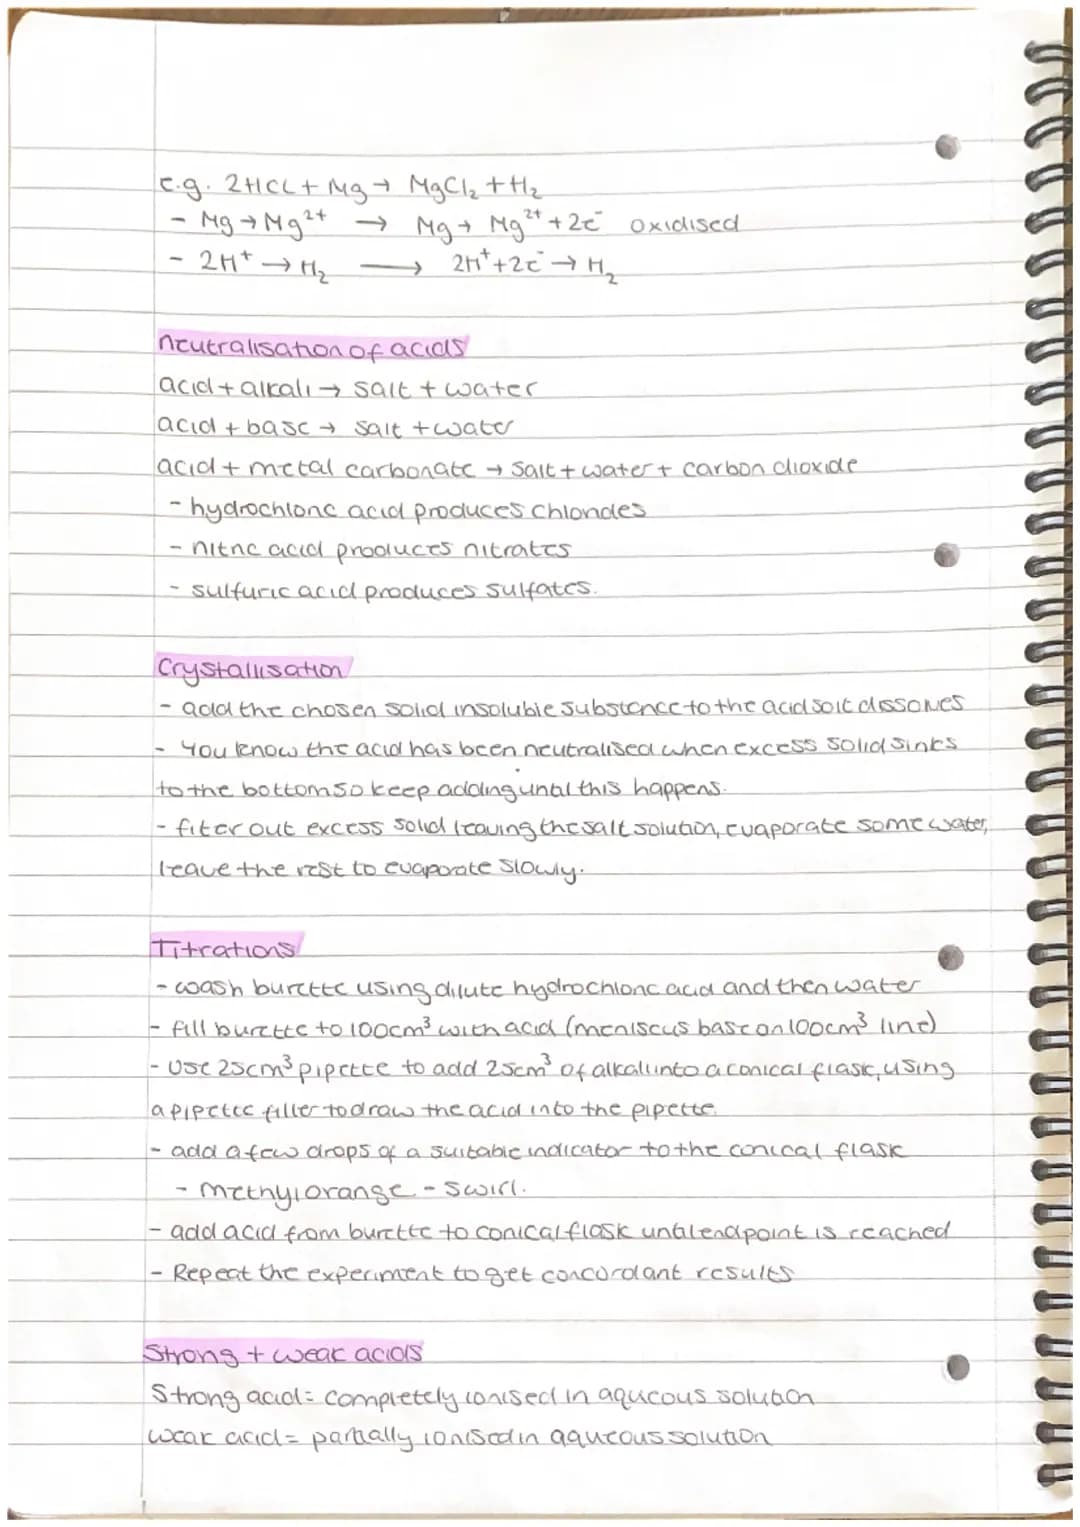 e.g. 2HCl + Mg → MgCl₂ + H₂
- Mg → Mg²⁺ → Mg → Mg²⁺ + 2e⁻ oxidised
- 2H⁺ → H₂ → 2H⁺ + 2e⁻ → H₂
neutralisation of acids
acid + alkali → salt + water
acid + base → salt + water
acid + metal carbonate → salt + water + carbon dioxide
- hydrochloric acid produces chlorides
- nitric acid produces nitrates
- sulfuric acid produces sulfates.
Crystallisation
- add the chosen solid insoluble substance to the acid so it dissolves
- You know the acid has been neutralised when excess solid sinks
to the bottom so keep adding until this happens.
- filter out excess solid leaving the salt solution, evaporate some water,
leave the rest to evaporate slowly.
Titrations
- wash burette using dilute hydrochloric acid and then water
- fill burette to 100cm³ with acid (meniscus base on 100cm³ line)
- Use 25cm³ pipette to add 25cm³ of alkali into a conical flask, using
a pipette filler to draw the acid into the pipette.
- add a few drops of a suitable indicator to the conical flask
- methyl orange - swirl.
- add acid from burette to conical flask until endpoint is reached
- Repeat the experiment to get concordant results
Strong + weak acids
Strong acid = completely ionised in aqueous solution
weak acid = partially ionised in aqueous solution